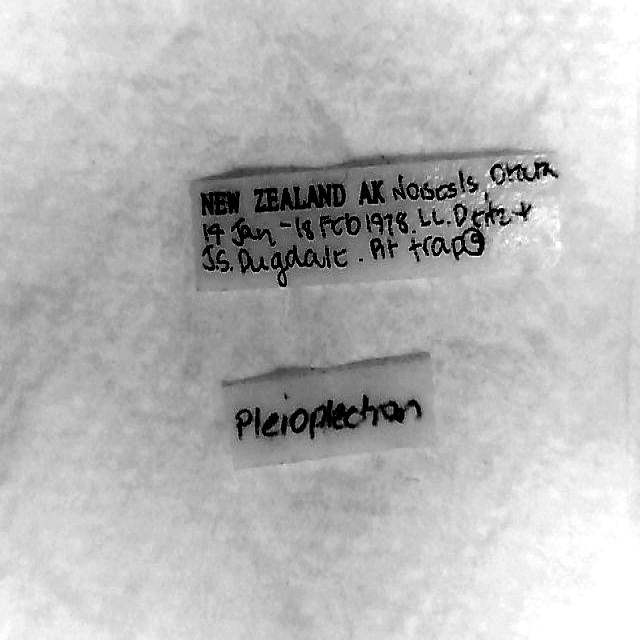 NEW ZEALAND AK Noises Is, Otata
14 Jan - 18 Feb 1978. L.L. Deitz +
J.S. Dugdale. Pit trap 9
Pleioplectron